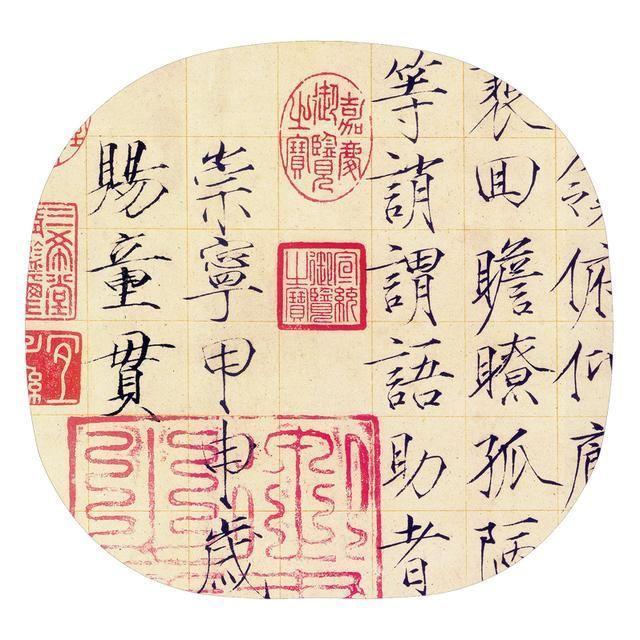 領俯仰廊
裵回瞻瞭孤陋
等誚謂語助者
嘉慶御覽之寶
宣統御覽之寶
崇寧甲申歲
賜童貫
三希堂